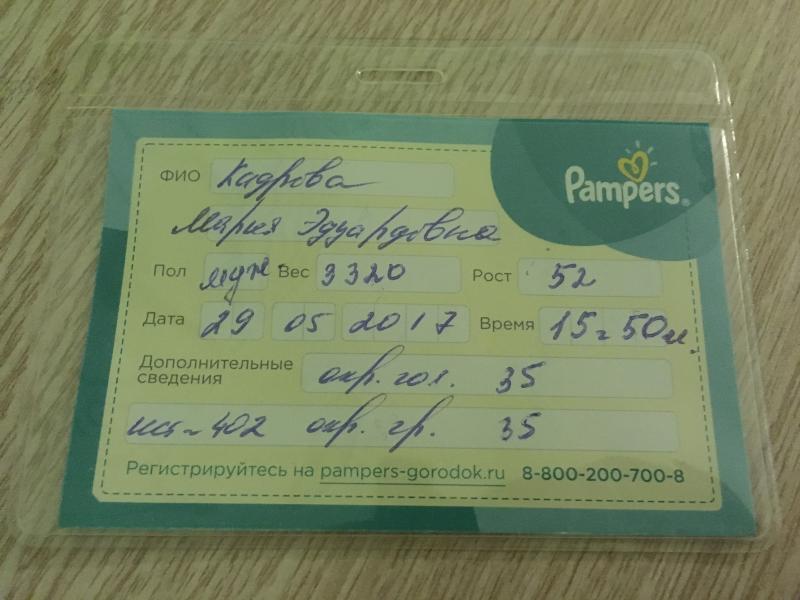 Pampers®
ФИО Кадрова
Мария Эдуардовна
Пол муж. Вес 3320 Рост 52
Дата 29 05 2017 Время 15ч 50м.
Дополнительные сведения окр. гол. 35
402 окр. гр. 35
Регистрируйтесь на pampers-gorodok.ru 8-800-200-700-8